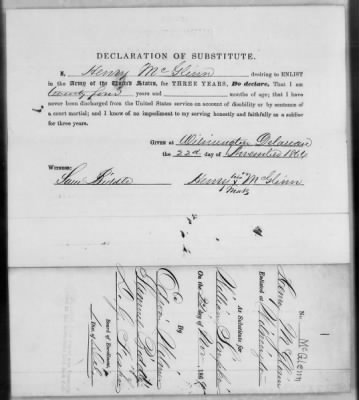 DECLARATION OF SUBSTITUTE.
I, Henry McGlinn desiring to ENLIST
in the Army of the United States, for THREE YEARS, Do declare, That I am
twenty four years and months of age; that I have
never been discharged from the United States service on account of disability or by sentence of
a court martial; and I know of no impediment to my serving honestly and faithfully as a soldier
for three years.
GIVEN at Wilmington Delaware
the 22d day of November 1864
WITNESS:
Sam Biddle
Henry his x McGlinn
mark
No. McGlenn
Henry McGlinn
Enlisted at Wilmington
As Substitute for
William
On the 22d day of Nov. 1864
By
Samuel Biddle
Board of Enrollment,
Dist. of Del